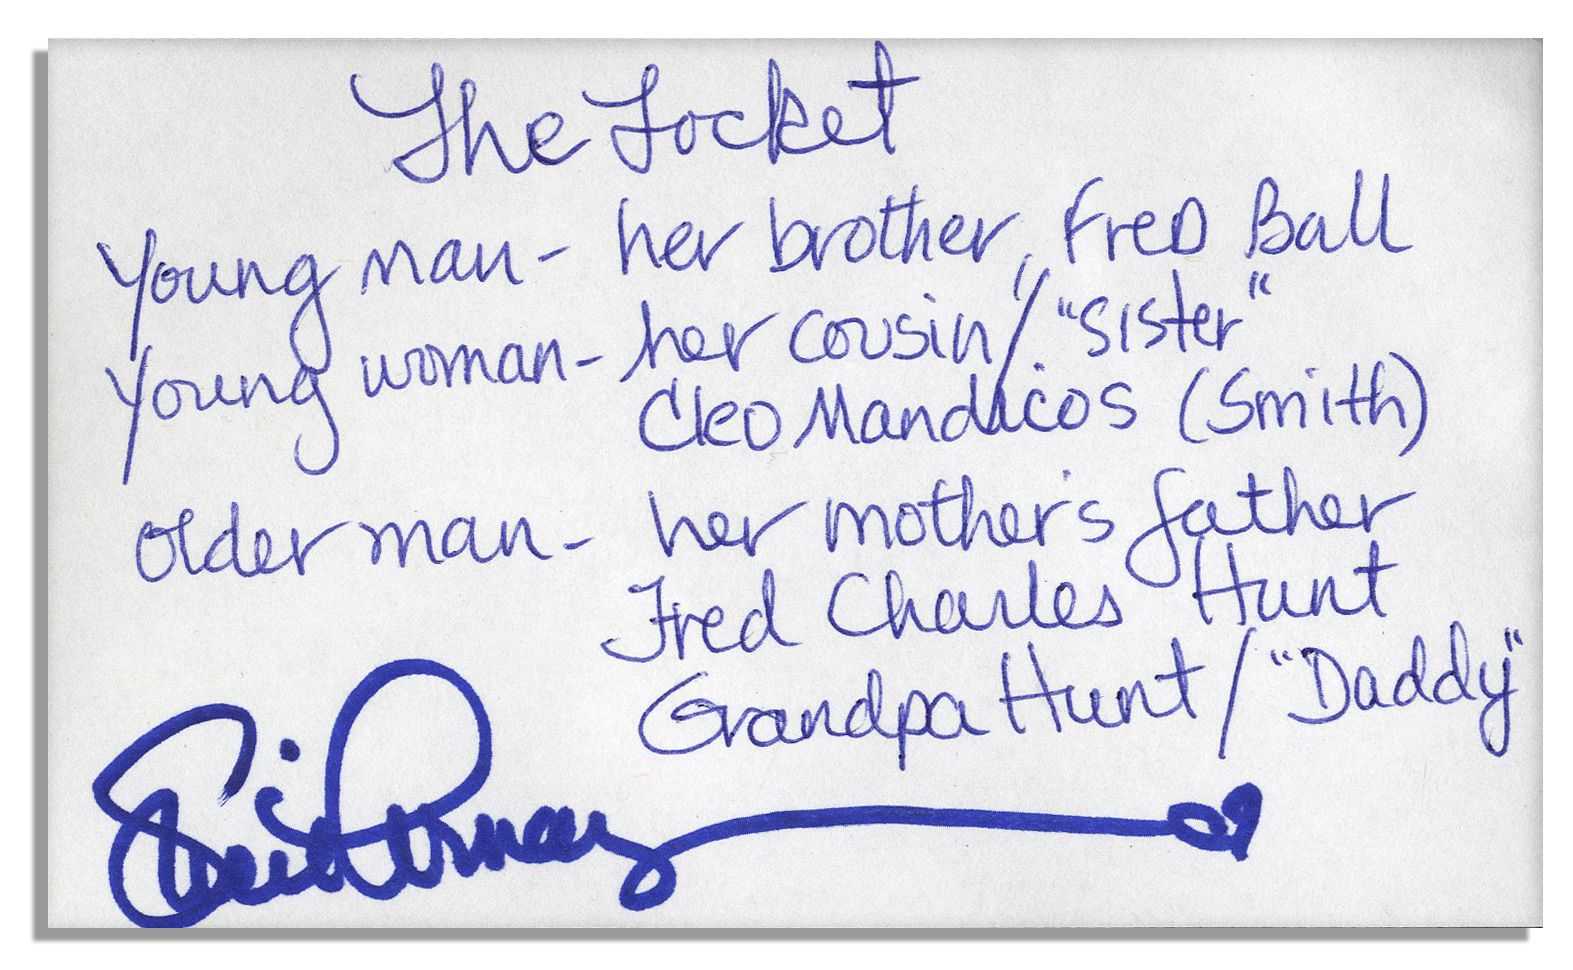 The Locket
Young man - her brother, Fred Ball
Young woman - her cousin/"sister"
Cleo Mandicos (Smith)
older man - her mother's father
Fred Charles Hunt
Grandpa Hunt/"Daddy"